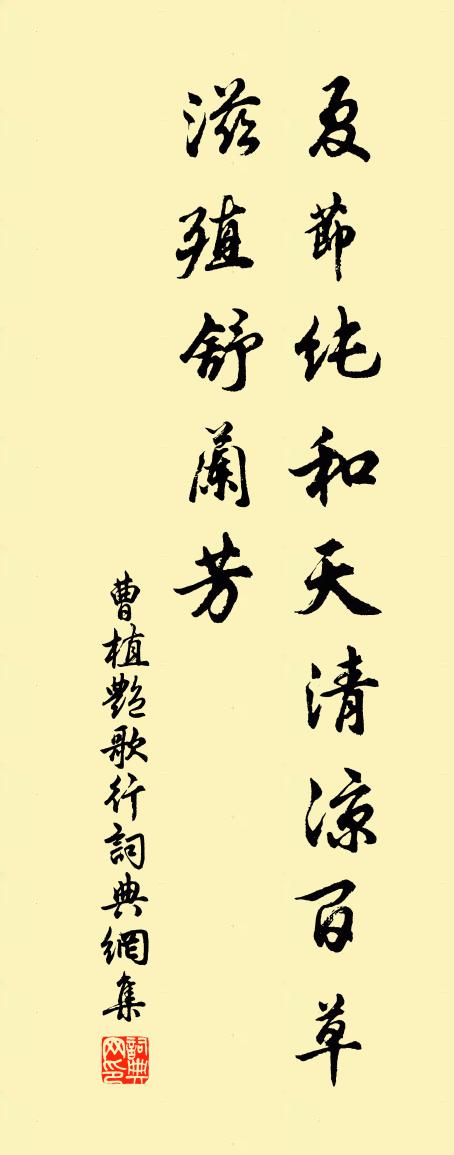 夏節純和天清涼百草
滋殖舒蘭芳
曹植艷歌行詞典網集
詞典网印